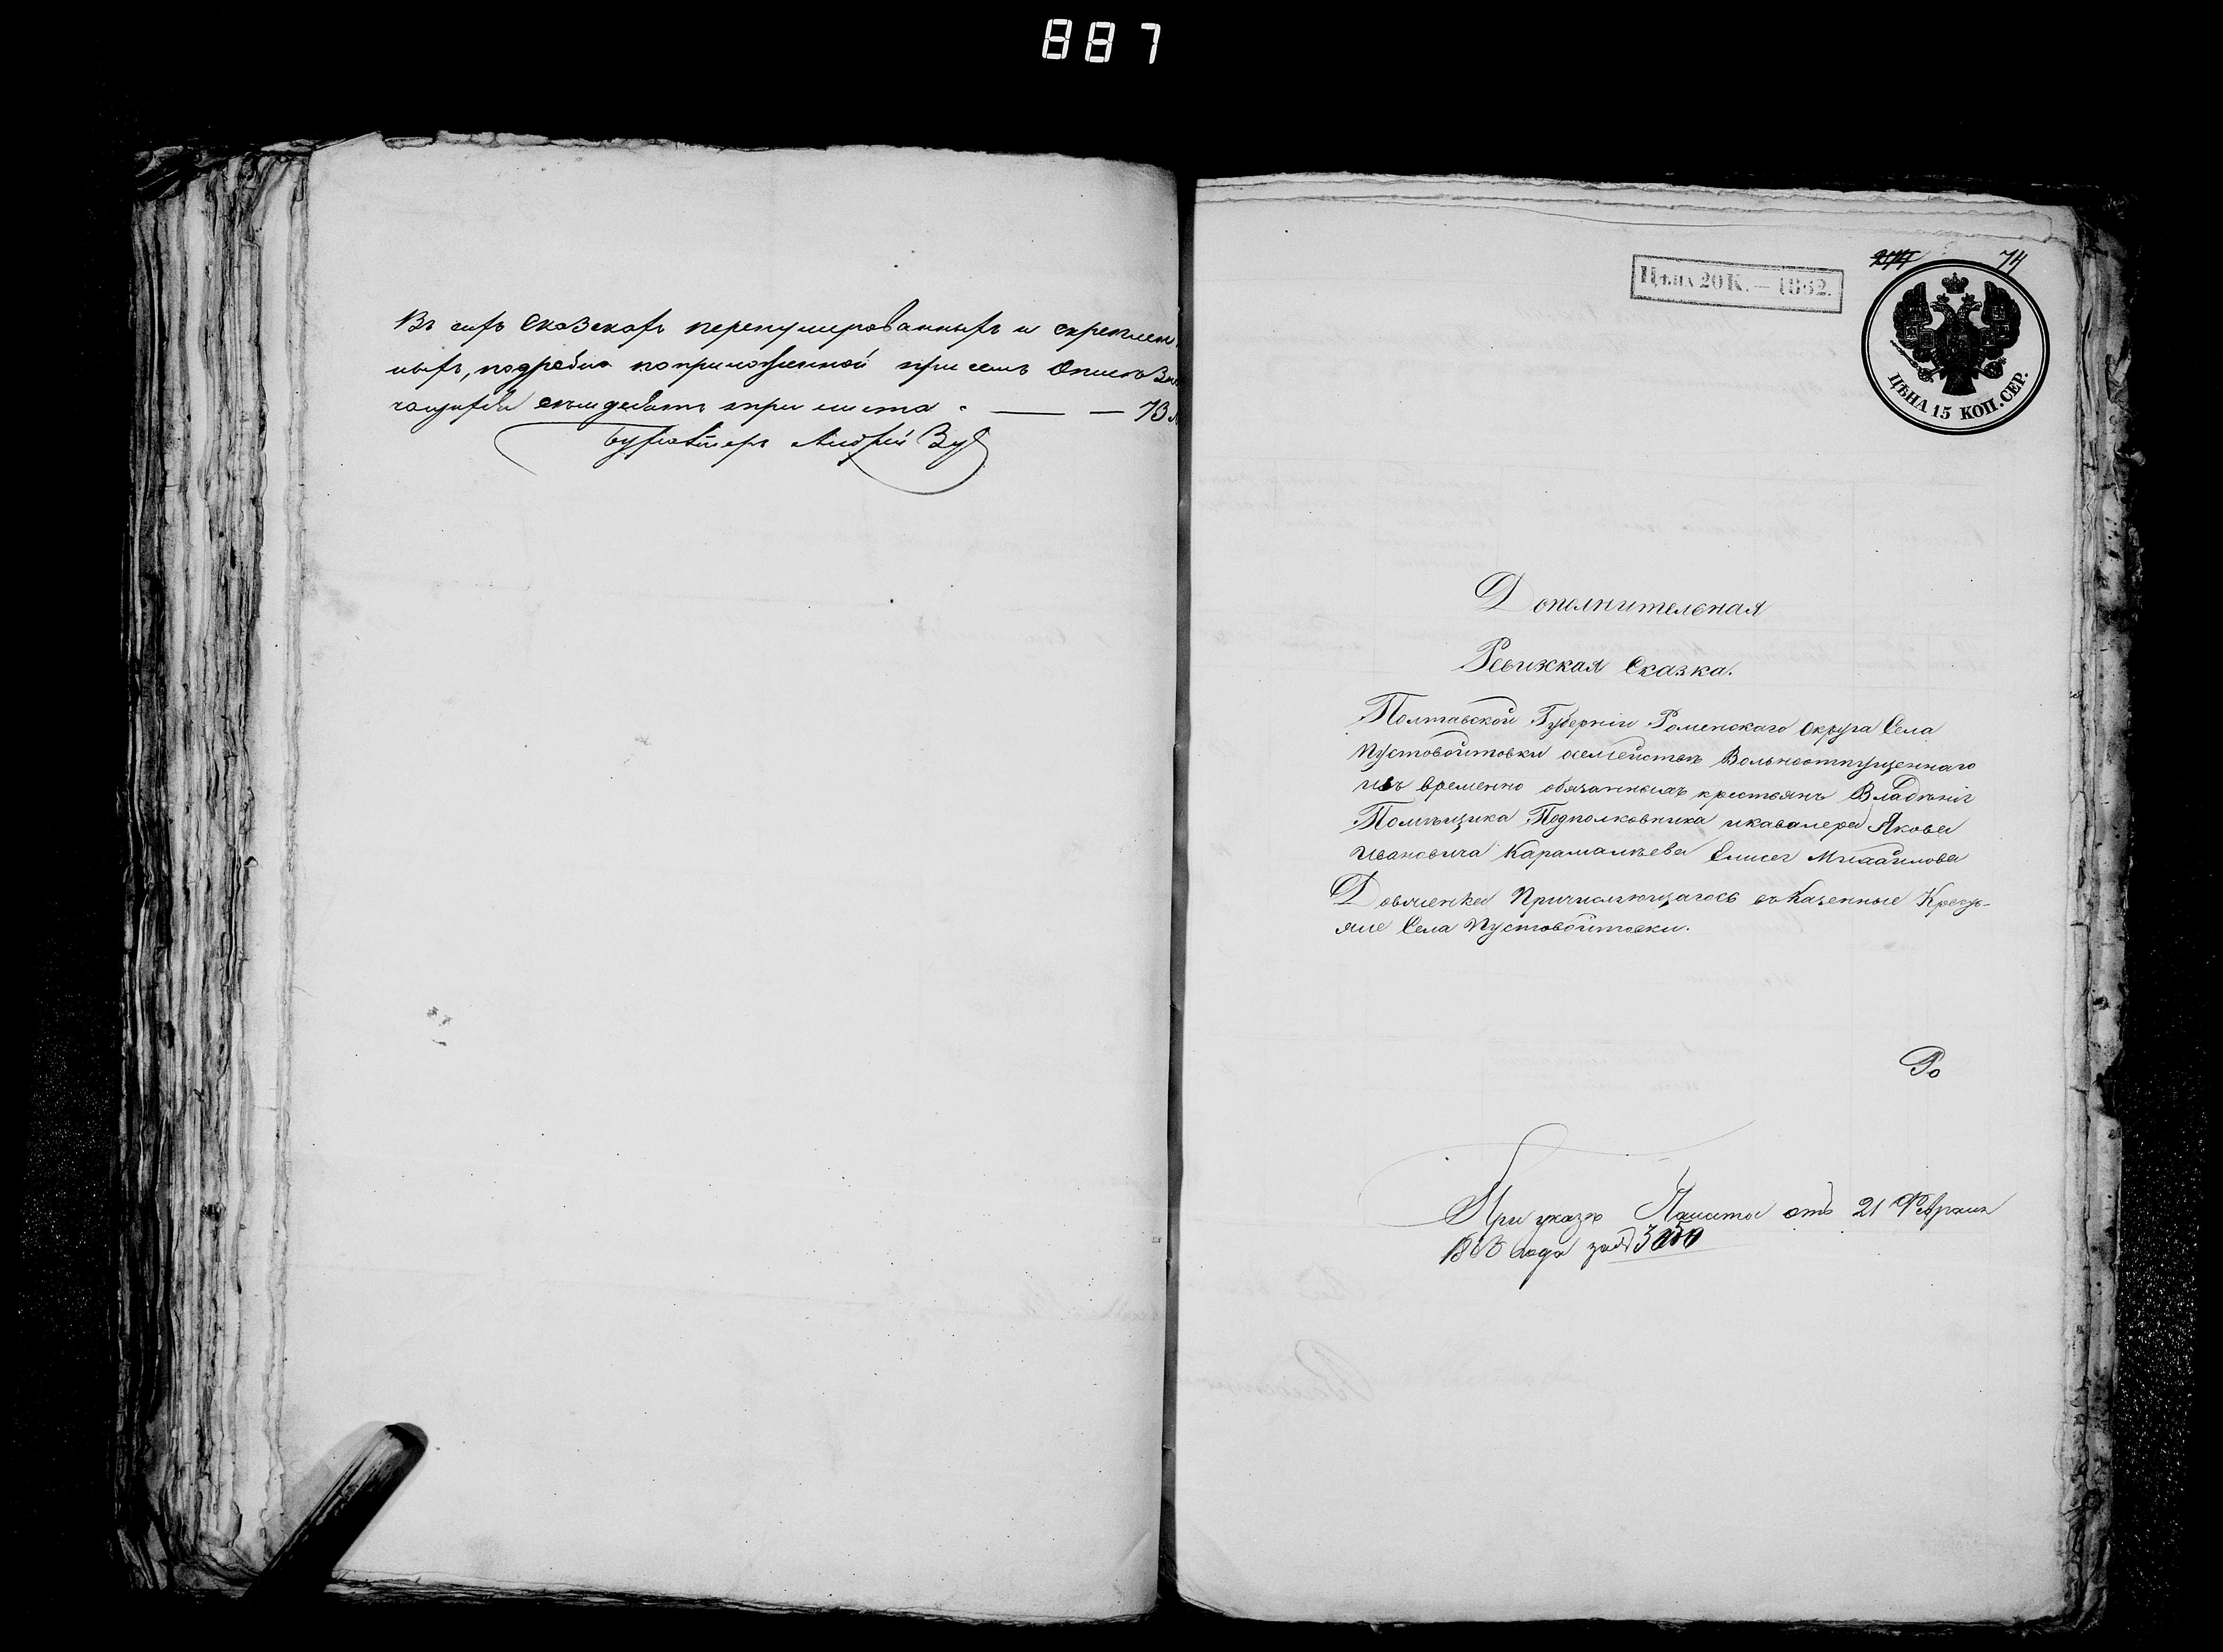 887
Въ сихъ Сказкахъ перенумерованныхъ и скреплен
ныхъ, подробно поприложенной при семъ Описи Зна
чащихся семдесятъ три листа. — — 73
Бухгалтеръ Андрей Зуб
74
Цѣна 20 К. — 1862.
ЦѢНА 15 КОП. СЕР.
Дополнительная
Ревижская Сказка.
Полтавской Губерніи Роменскаго округа Села
Пустовойтовки семейства Вольноотпущеннаго
изъ временно обязанныхъ крестьянъ Владѣнія
Помѣщика Подполковника икавалера Якова
Ивановича Карамалѣева Елисея Михайлова
Довгенка Причисляющагось въ Казенные Кресть-
яне Села Пустовойтовки.
Ро
При указѣ Палаты отъ 21 Февраля
года за №